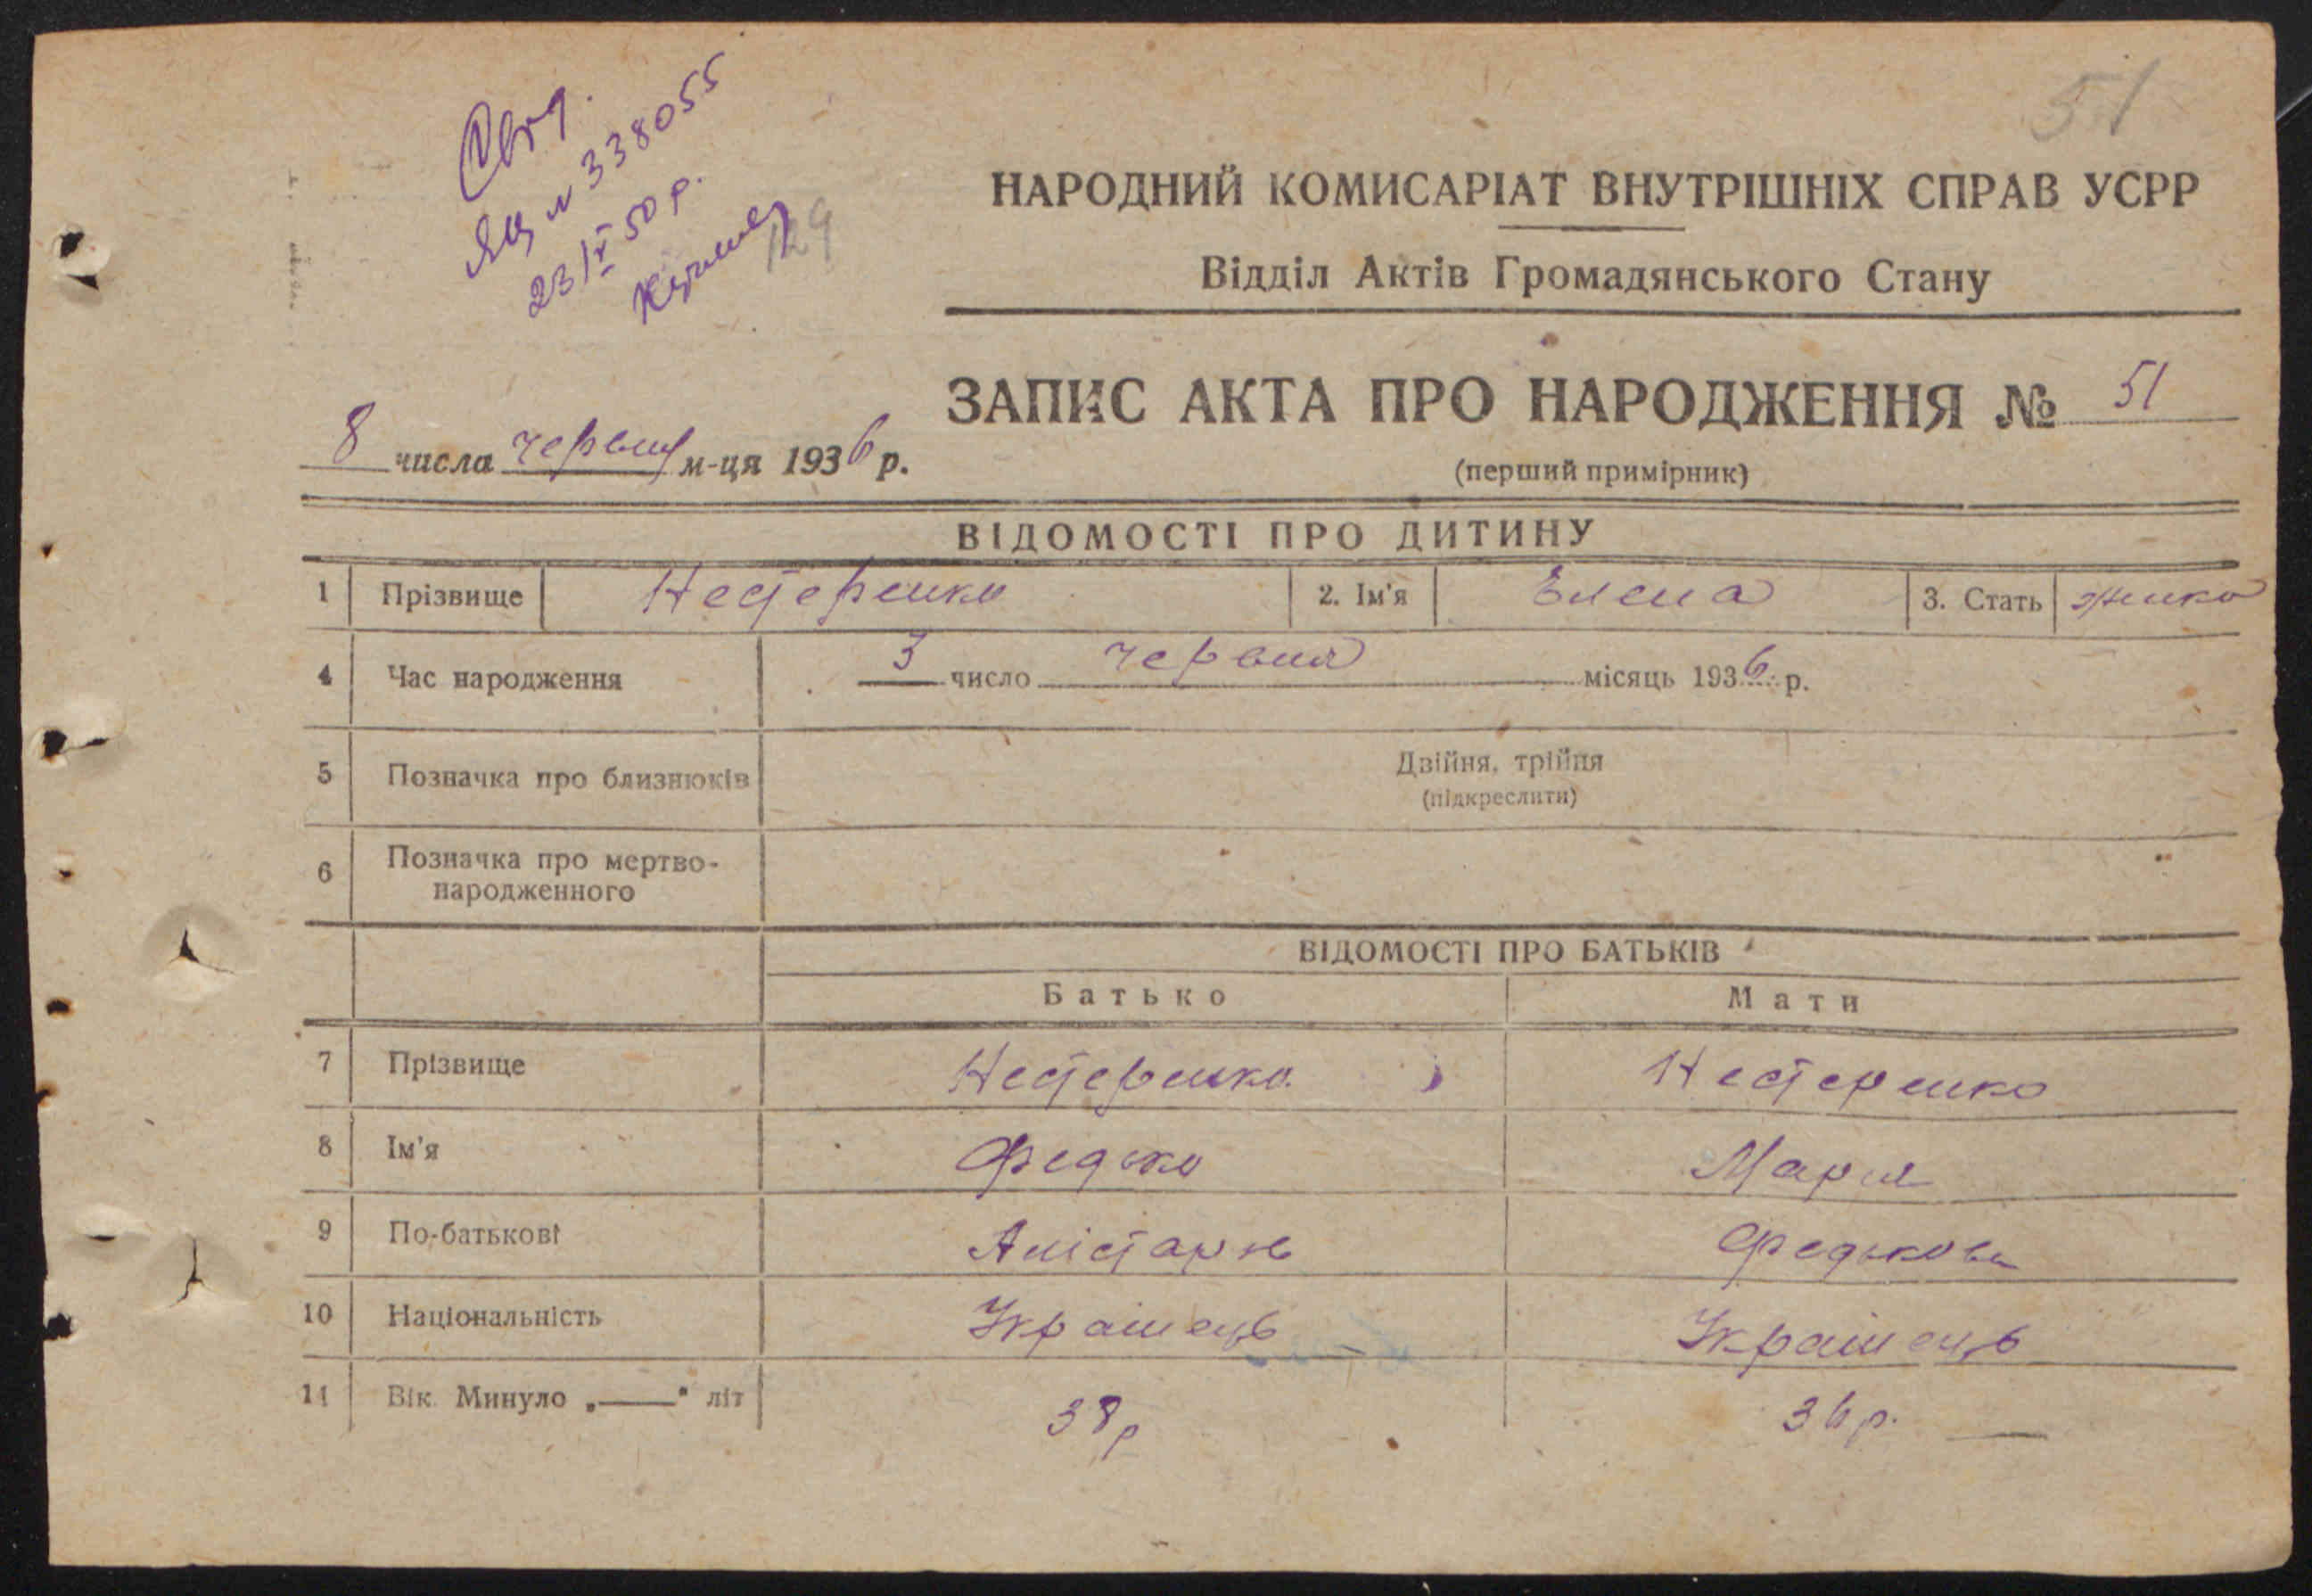 51
Свід.
ЯЦ № 338055
23/V 50 р.
129
НАРОДНИЙ КОМИСАРІАТ ВНУТРІШНІХ СПРАВ УСРР
Відділ Актів Громадянського Стану
ЗАПИС АКТА ПРО НАРОДЖЕННЯ № 51
8 числа червня м-ця 1936 р.
(перший примірник)
ВІДОМОСТІ ПРО ДИТИНУ
1 Прізвище Нестеренко 2. Ім'я Елена 3. Стать жінка
4 Час народження 3 число червня місяць 1936 р.
5 Позначка про близнюків Двійня, трійня
(підкреслити)
6 Позначка про мертво-
народженного
ВІДОМОСТІ ПРО БАТЬКІВ
Батько Мати
7 Прізвище Нестеренко Нестеренко
8 Ім'я Федько Мария
9 По-батькові Федькова
10 Національність Українець Українець
11 Вік. Минуло „——" літ 38 р 36 р.